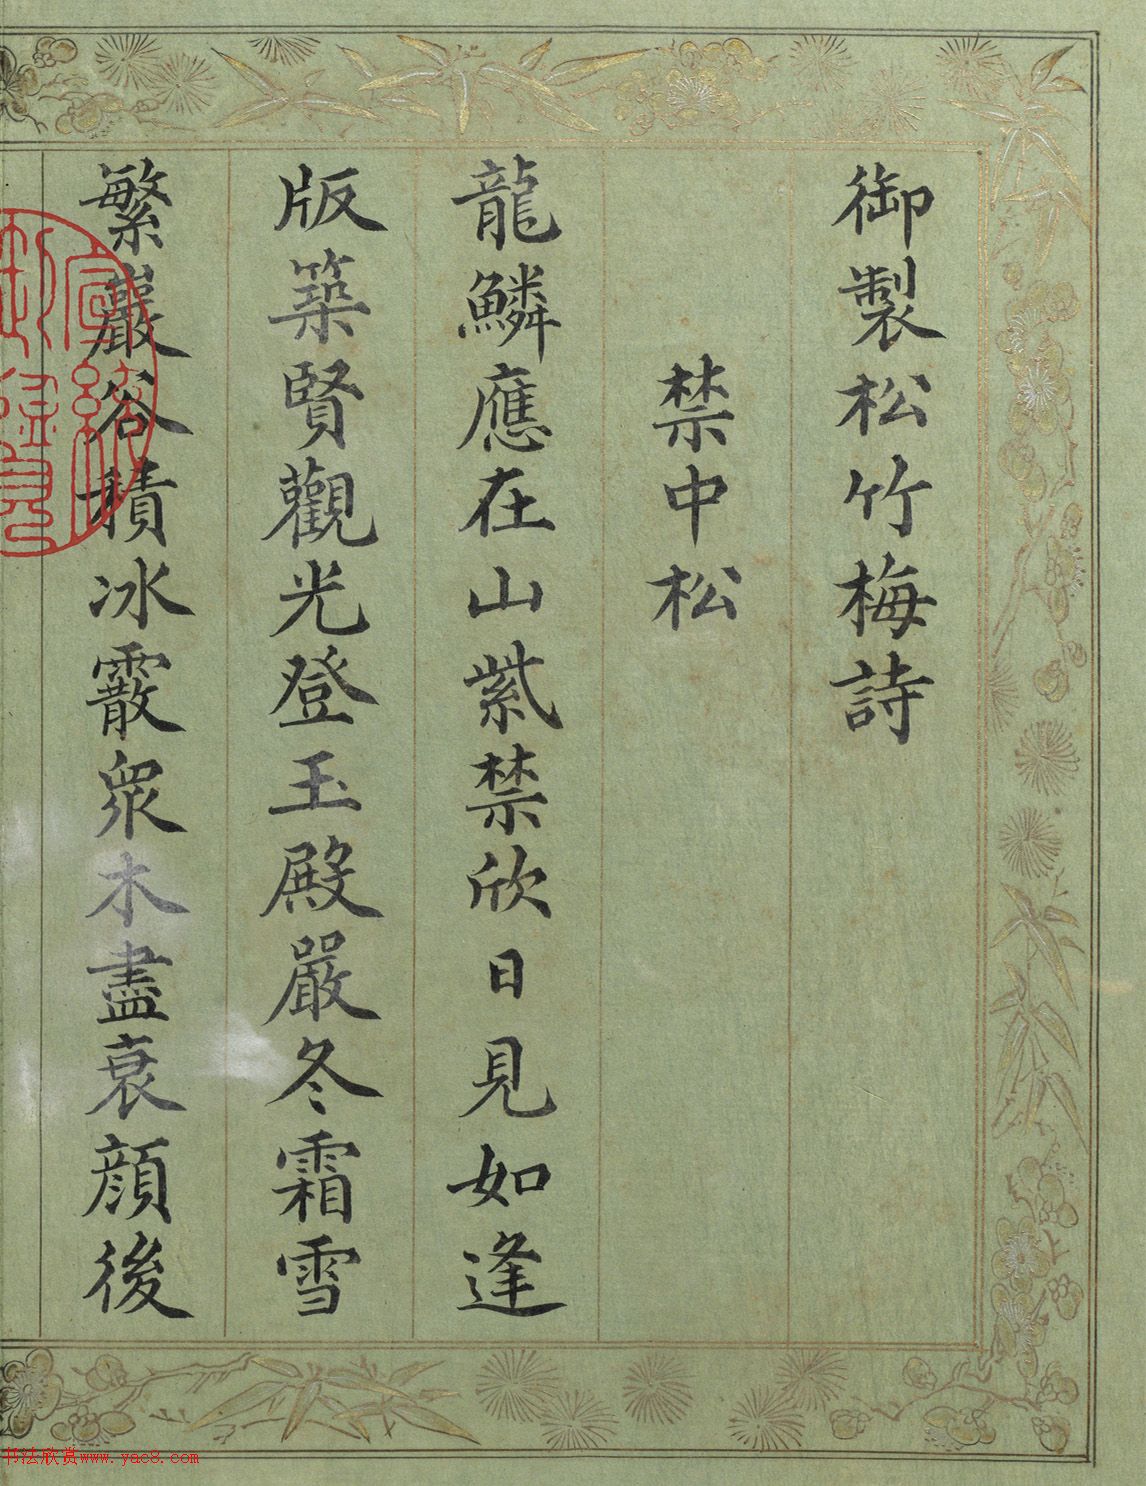 御製松竹梅詩
禁中松
龍鱗應在山紫禁欣日見如逢
版築賢觀光登玉殿嚴冬霜雪
繁巖谷積冰霰衆木盡衰顔後
书法欣赏www.yac8.com